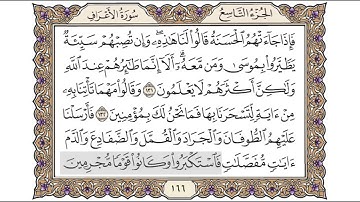 الجزء التاسع
سورة الأعراف
فَإِذَا جَآءَتْهُمُ ٱلْحَسَنَةُ قَالُوا۟ لَنَا هَٰذِهِۦ ۖ وَإِن تُصِبْهُمْ سَيِّئَةٌ
يَطَّيَّرُوا۟ بِمُوسَىٰ وَمَن مَّعَهُۥٓ ۗ أَلَآ إِنَّمَا طَٰٓئِرُهُمْ عِندَ ٱللَّهِ
وَلَٰكِنَّ أَكْثَرَهُمْ لَا يَعْلَمُونَ ١٣١ وَقَالُوا۟ مَهْمَا تَأْتِنَا بِهِۦ
مِنْ ءَايَةٍ لِّتَسْحَرَنَا بِهَا فَمَا نَحْنُ لَكَ بِمُؤْمِنِينَ ١٣٢ فَأَرْسَلْنَا
عَلَيْهِمُ ٱلطُّوفَانَ وَٱلْجَرَادَ وَٱلْقُمَّلَ وَٱلضَّفَادِعَ وَٱلدَّمَ
ءَايَٰتٍ مُّفَصَّلَٰتٍ فَٱسْتَكْبَرُوا۟ وَكَانُوا۟ قَوْمًا مُّجْرِمِينَ
١٦٦